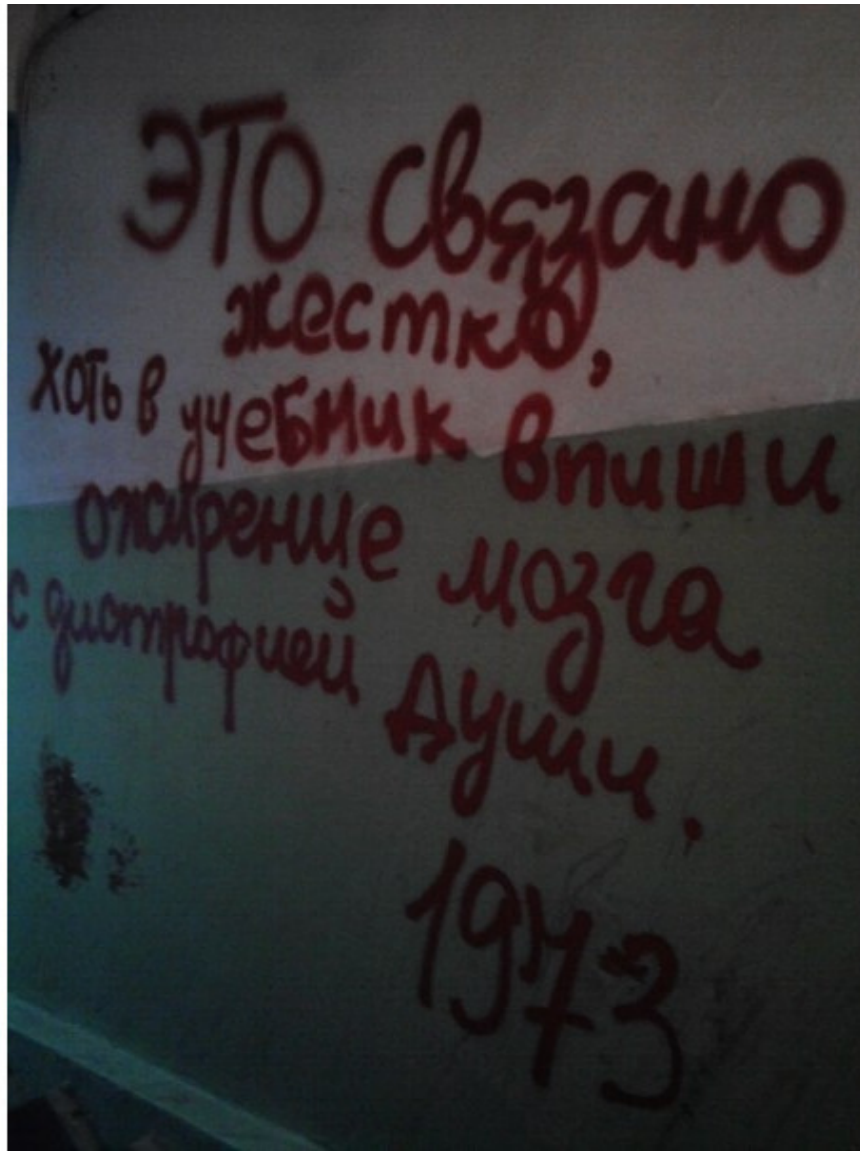 ЭТО связано
жестко,
хоть в учебник впиши
ожирение мозга
с дистрофией души.
1973